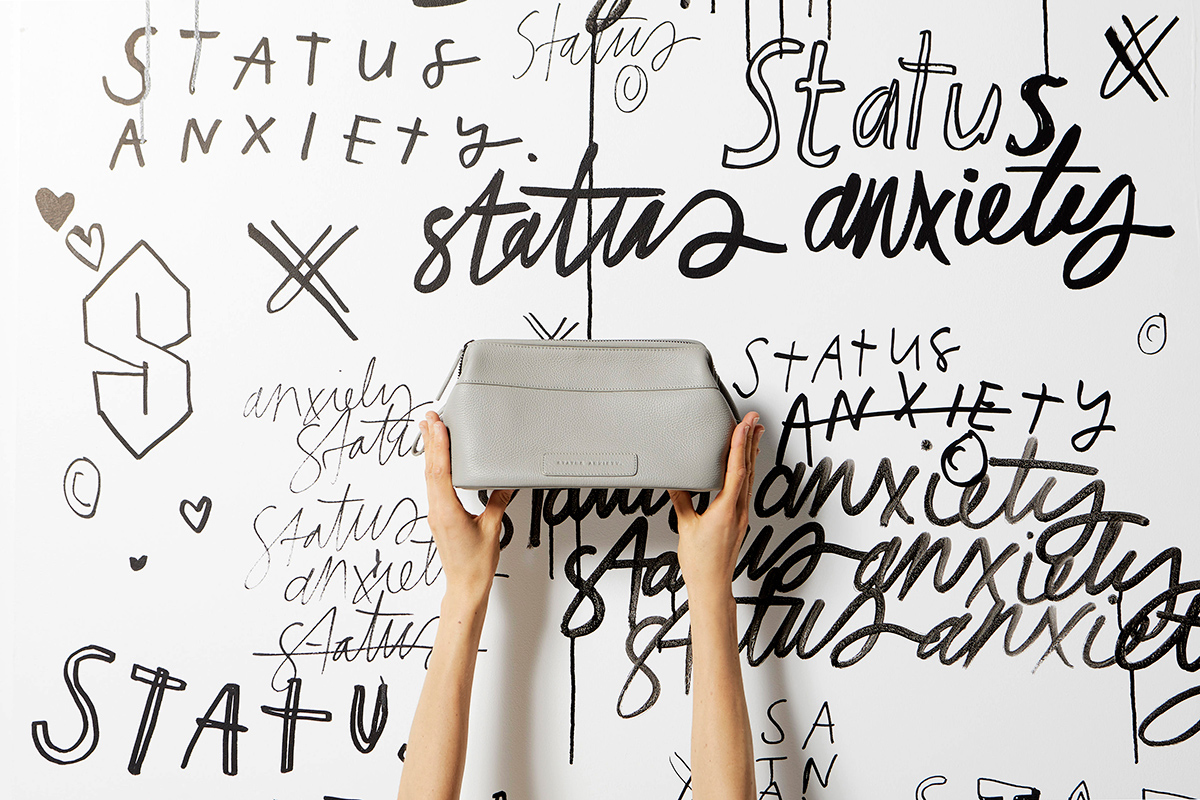 STATUS
ANXIETY.
Status
©
Status
status anxiety
©
STATUS
ANXIETY
anxiety
status
©
©
anxiety
STATUS ANXIETY
status
anxiety
status anxiety
status anxiety
status
STATU
S A
T N